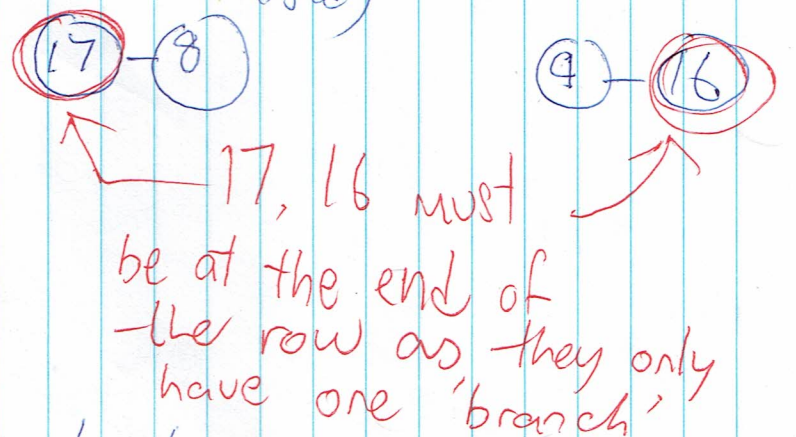 17 - 8
9 - 16
17, 16 must
be at the end of
the row as they only
have one 'branch'